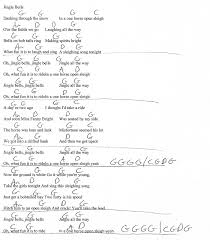 Jingle Bells
G G G C
Dashing through the snow In a one horse open sleigh
Am D G
O'er the fields we go Laughing all the way
G G C
Bells on bob tails ring Making spirits bright
Am D G
What fun it is to laugh and sing A sleighing song tonight
G G
Oh, jingle bells, jingle bells Jingle all the way
C G A D
Oh, what fun it is to ride In a one horse open sleigh
G G
Jingle bells, jingle bells Jingle all the way
C G D G
Oh, what fun it is to ride In a one horse open sleigh
G G C
A day or two ago I thought I'd take a ride
Am D G
And soon Miss Fanny Bright Was seated by my side
G G C
The horse was lean and lank Misfortune seemed his lot
Am D G
We got into a drifted bank And then we got upset
G G
Oh, jingle bells, jingle bells Jingle all the way
C G A D
Oh, what fun it is to ride In a one horse open sleigh
G G
Jingle bells, jingle bells Jingle all the way
C G D G
Oh, what fun it is to ride In a one horse open sleigh yeah GGGG/CGDG
G C
Now the ground is white Go it while you're young
Am D G
Take the girls tonight And sing this sleighing song
G C
Just get a bobtailed bay Two forty as his speed
Am D G
Hitch him to an open sleigh And crack! You'll take the lead
G G
Oh, jingle bells, jingle bells Jingle all the way
C G D G
Oh, what fun it is to ride In a one horse open sleigh yeah GGGG/CGDG